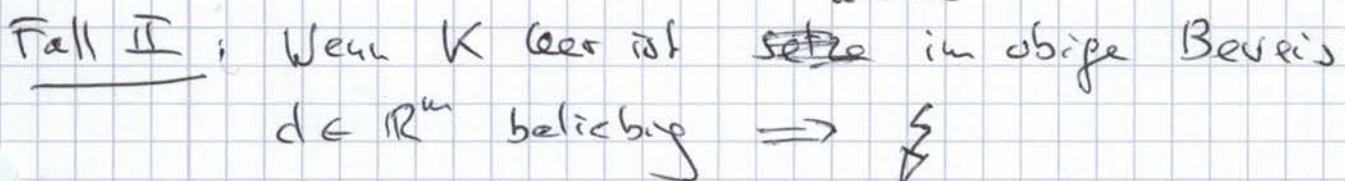 Fall II: Wenn K leer ist setze im obige Beweis
d ∈ ℝᵐ beliebig ⟹ ↯